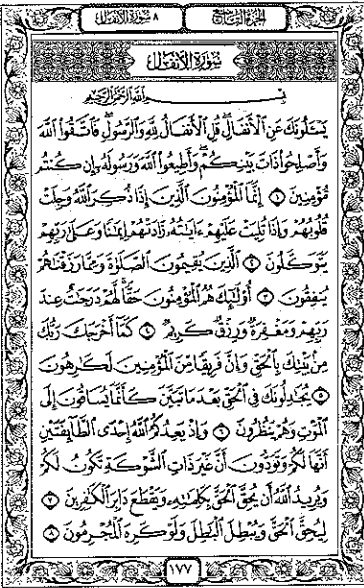 الجزء التاسع ٨ سورة الأنفال
سورة الأنفال
بسم الله الرحمن الرحيم
يَسْـَٔلُونَكَ عَنِ ٱلْأَنفَالِ ۖ قُلِ ٱلْأَنفَالُ لِلَّهِ وَٱلرَّسُولِ ۖ فَٱتَّقُوا۟ ٱللَّهَ
وَأَصْلِحُوا۟ ذَاتَ بَيْنِكُمْ ۖ وَأَطِيعُوا۟ ٱللَّهَ وَرَسُولَهُۥٓ إِن كُنتُم
مُّؤْمِنِينَ ١ إِنَّمَا ٱلْمُؤْمِنُونَ ٱلَّذِينَ إِذَا ذُكِرَ ٱللَّهُ وَجِلَتْ
قُلُوبُهُمْ وَإِذَا تُلِيَتْ عَلَيْهِمْ ءَايَـٰتُهُۥ زَادَتْهُمْ إِيمَـٰنًا وَعَلَىٰ رَبِّهِمْ
يَتَوَكَّلُونَ ٢ ٱلَّذِينَ يُقِيمُونَ ٱلصَّلَوٰةَ وَمِمَّا رَزَقْنَـٰهُمْ
يُنفِقُونَ ٣ أُو۟لَـٰٓئِكَ هُمُ ٱلْمُؤْمِنُونَ حَقًّا ۚ لَّهُمْ دَرَجَـٰتٌ عِندَ
رَبِّهِمْ وَمَغْفِرَةٌ وَرِزْقٌ كَرِيمٌ ٤ كَمَآ أَخْرَجَكَ رَبُّكَ
مِنۢ بَيْتِكَ بِٱلْحَقِّ وَإِنَّ فَرِيقًا مِّنَ ٱلْمُؤْمِنِينَ لَكَـٰرِهُونَ
٥ يُجَـٰدِلُونَكَ فِى ٱلْحَقِّ بَعْدَ مَا تَبَيَّنَ كَأَنَّمَا يُسَاقُونَ إِلَى
ٱلْمَوْتِ وَهُمْ يَنظُرُونَ ٦ وَإِذْ يَعِدُكُمُ ٱللَّهُ إِحْدَى ٱلطَّآئِفَتَيْنِ
أَنَّهَا لَكُمْ وَتَوَدُّونَ أَنَّ غَيْرَ ذَاتِ ٱلشَّوْكَةِ تَكُونُ لَكُمْ
وَيُرِيدُ ٱللَّهُ أَن يُحِقَّ ٱلْحَقَّ بِكَلِمَـٰتِهِۦ وَيَقْطَعَ دَابِرَ ٱلْكَـٰفِرِينَ ٧
لِيُحِقَّ ٱلْحَقَّ وَيُبْطِلَ ٱلْبَـٰطِلَ وَلَوْ كَرِهَ ٱلْمُجْرِمُونَ ٨
١٧٧